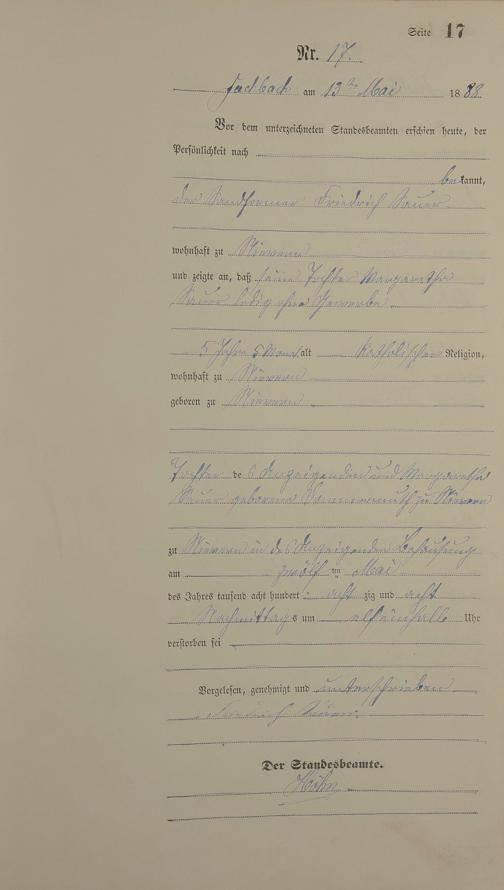 Seite 17
Nr. 17.
Fachbach am 13ten Mai 1888
Vor dem unterzeichneten Standesbeamten erschien heute, der
Persönlichkeit nach
bekannt,
der Sandformer Friedrich Sauer
wohnhaft zu Nievern
und zeigte an, daß seine Tochter Margaretha
Sauer ledig ohne Gewerbe
5 Jahre 5 Monat alt katholischer Religion,
wohnhaft zu Nievern
geboren zu Nievern
Tochter des Anzeigenden und Margaretha
Sauer geborene zu Nievern
zu Nievern in des Anzeigenden Behausung
am zwölften Mai
des Jahres tausend acht hundert achtzig und acht
Nachmittags um elfeinhalb Uhr
verstorben sei
Vorgelesen, genehmigt und unterschrieben
Friedrich Sauer.
Der Standesbeamte.
Höhn